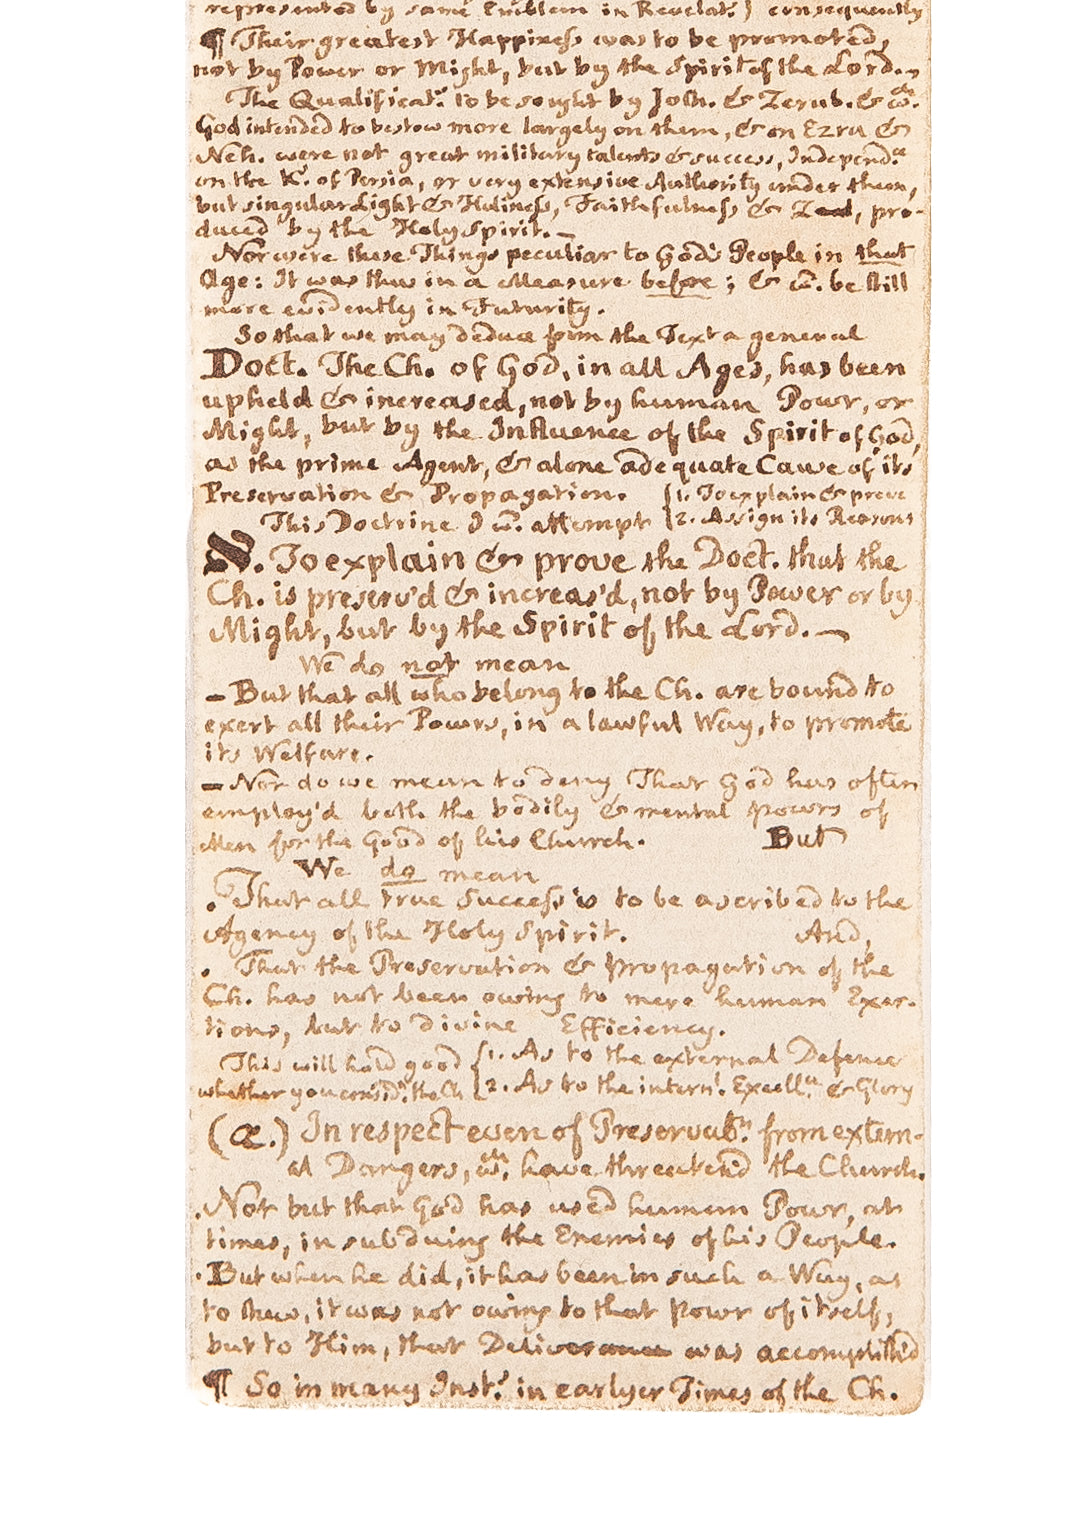 represented by same Emblem in Revelat.) consequently
¶ Their greatest Happiness was to be promoted,
not by Power or Might, but by the Spirit of the Lord.~
The Qualificat.ˢ to be sought by Josh. & Zerub. & wᶜʰ.
God intended to bestow more largely on them, & on Ezra &
Neh. were not great military talents & success, Independ.ᶜᵉ
on the K.ˢ of Persia, or very extensive Authority under them,
but singular Light & Holiness, Faithfulness & Zeal, pro-
duced by the Holy Spirit.—
Nor were these Things peculiar to God's People in that
Age: It was thus in a Measure before; & w.ᵈ be still
more evidently in Futurity.
So that we may deduce from the Text a general
Doct. The Ch. of God, in all Ages, has been
upheld & increased, not by human Powr, or
Might, but by the Influence of the Spirit of God,
as the prime Agent, & alone adequate Cause of its
Preservation & Propagation. {1. To explain & prove
This Doctrine I w.ᵈ attempt {2. Assign its Reasons
To explain & prove the Doct. that the
Ch. is preserv'd & increas'd, not by Power or by
Might, but by the Spirit of the Lord.—
We do not mean
– But that all who belong to the Ch. are bound to
exert all their Powrs, in a lawful Way, to promote
its Welfare.
– Nor do we mean to deny That God has often
employ'd both the bodily & mental powrs of
Men for the Good of his Church. But
We do mean
. That all true Success is to be ascribed to the
Agency of the Holy Spirit. And,
. That the Preservation & Propagation of the
Ch. has not been owing to mere human Exer-
tions, but to divine Efficiency.
This will hold good {1. As to the external Defence
whether you consid.ʳ the Ch {2. As to the intern.ˡ Excell.ᶜᵉ & Glory
(a.) In respect even of Preservat.ⁿ from extern-
al Dangers, wᶜʰ. have threatend the Church.
. Not but that God has used human Powr, at
times, in subduing the Enemies of his People.
. But when he did, it has been in such a Way, as
to shew, it was not owing to that Powr of itself,
but to Him, that Deliverance was accomplish'd
¶ So in many Inst.ˢ in earlyer Times of the Ch.